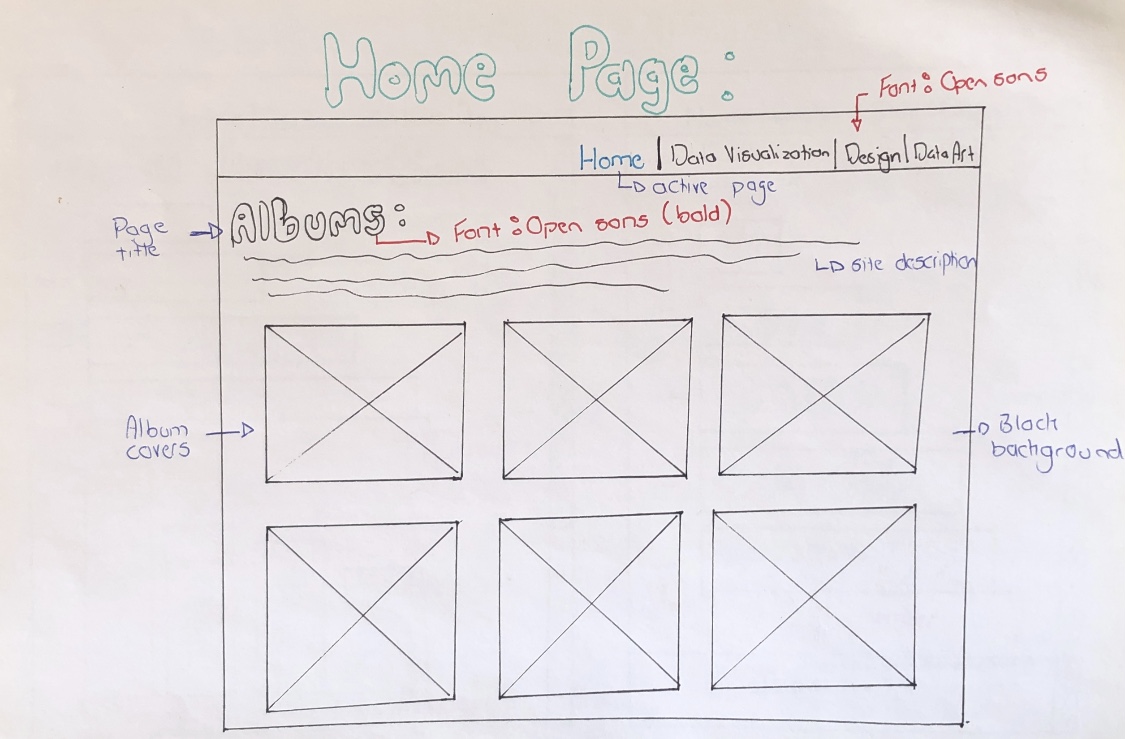 Home Page:
Font: Open sans
Home | Data Visualization | Design | Data Art
active page
Page
title
Albums:
Font: Open sans (bold)
site description
Album
covers
Black
background